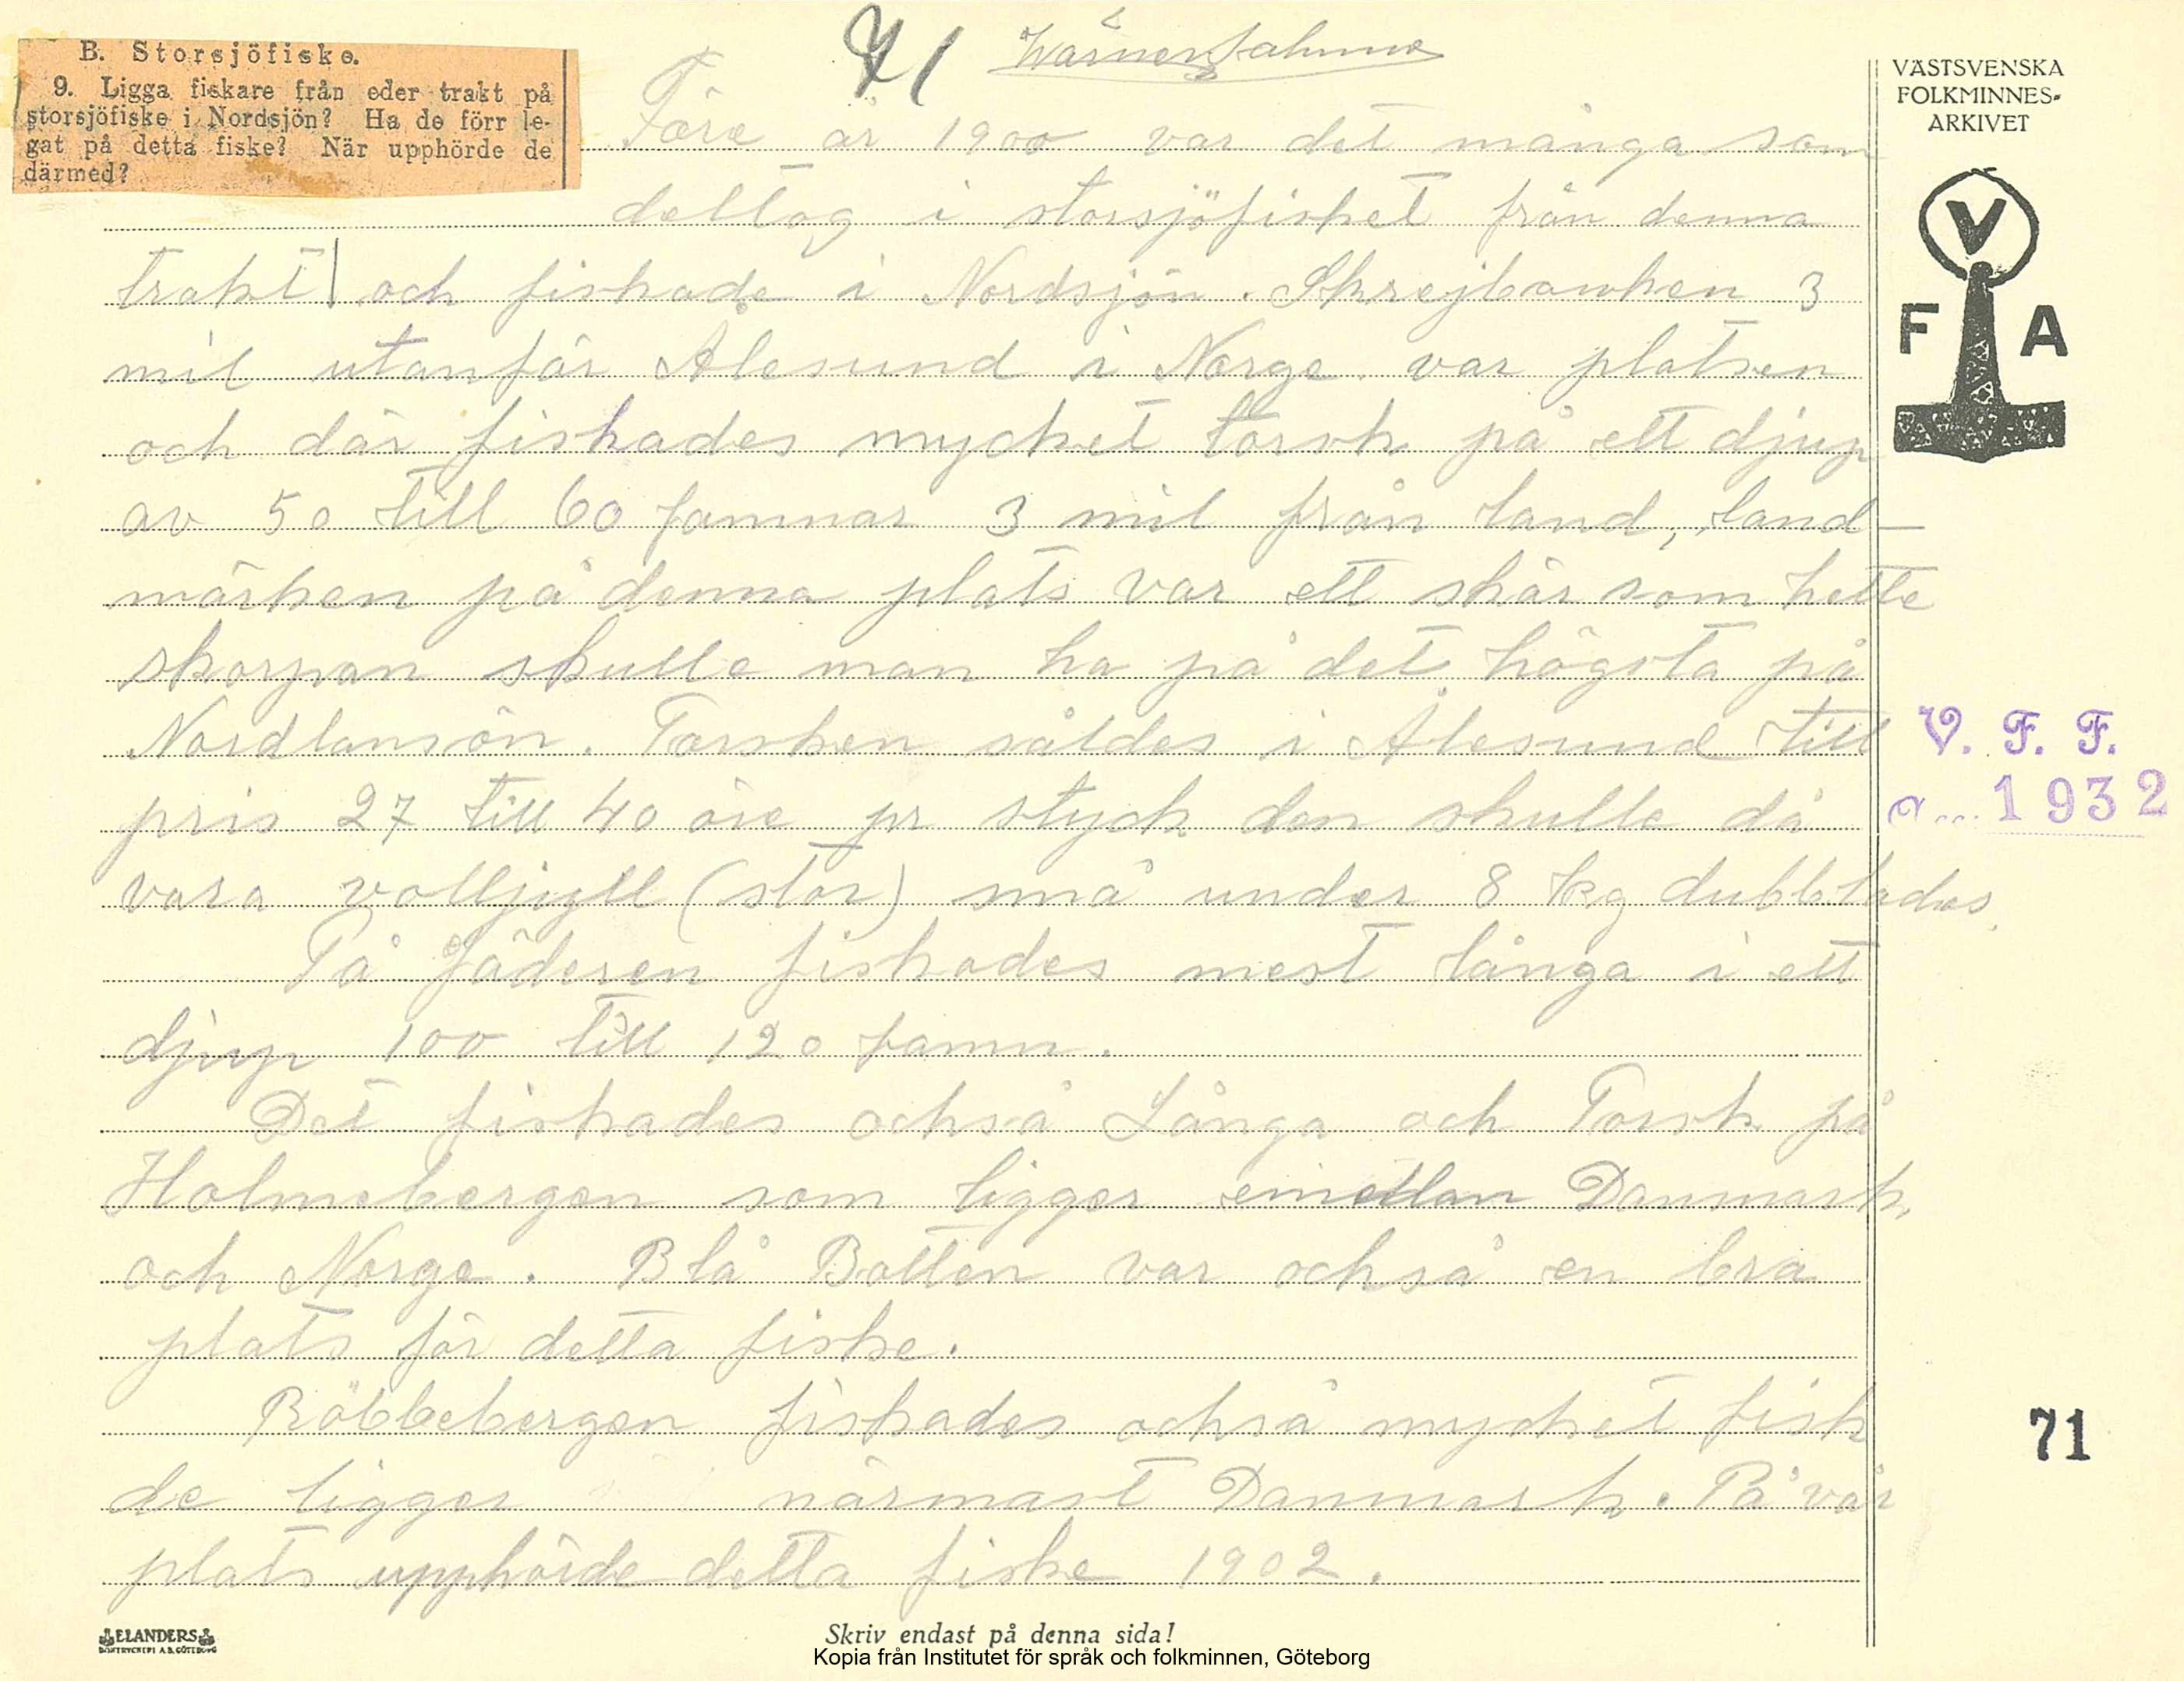 B. Storsjöfiske.
9. Ligga fiskare från eder trakt på
storsjöfiske i Nordsjön? Ha de förr le-
gat på detta fiske? När upphörde de
därmed?
71
Före år 1900 var det många som
deltog i storsjöfisket från denna
trakt och fiskade i Nordsjön. Skrejbanken 3
mil utanför Ålesund i Norge var platsen
och där fiskades mycket torsk på ett djup
av 50 till 60 famnar 3 mil från land, land-
märken på denna plats var ett skär som hette
skorpan skulle man ha på det högsta på
Nordlansön. Torsken såldes i Ålesund till
pris 27 till 40 öre pr styck den skulle då
vara volljigll (stor) små under 8 kg dubblades,
På Jäderen fiskades mest långa i ett
djup 100 till 120 famn.
Det fiskades också Långa och Torsk på
Holmebergen som ligger emellan Danmark,
och Norge. Blå Botten var också en bra
plats för detta fiske.
Röbbebergen fiskades också mycket fisk
de ligger närmast Danmark. På vår
plats upphörde detta fiske 1902.
VÄSTSVENSKA
FOLKMINNES-
ARKIVET
V
F A
V. F. F.
1932
71
ELANDERS
BOKTRYCKERI A.B. GÖTEBORG
Skriv endast på denna sida!
Kopia från Institutet för språk och folkminnen, Göteborg